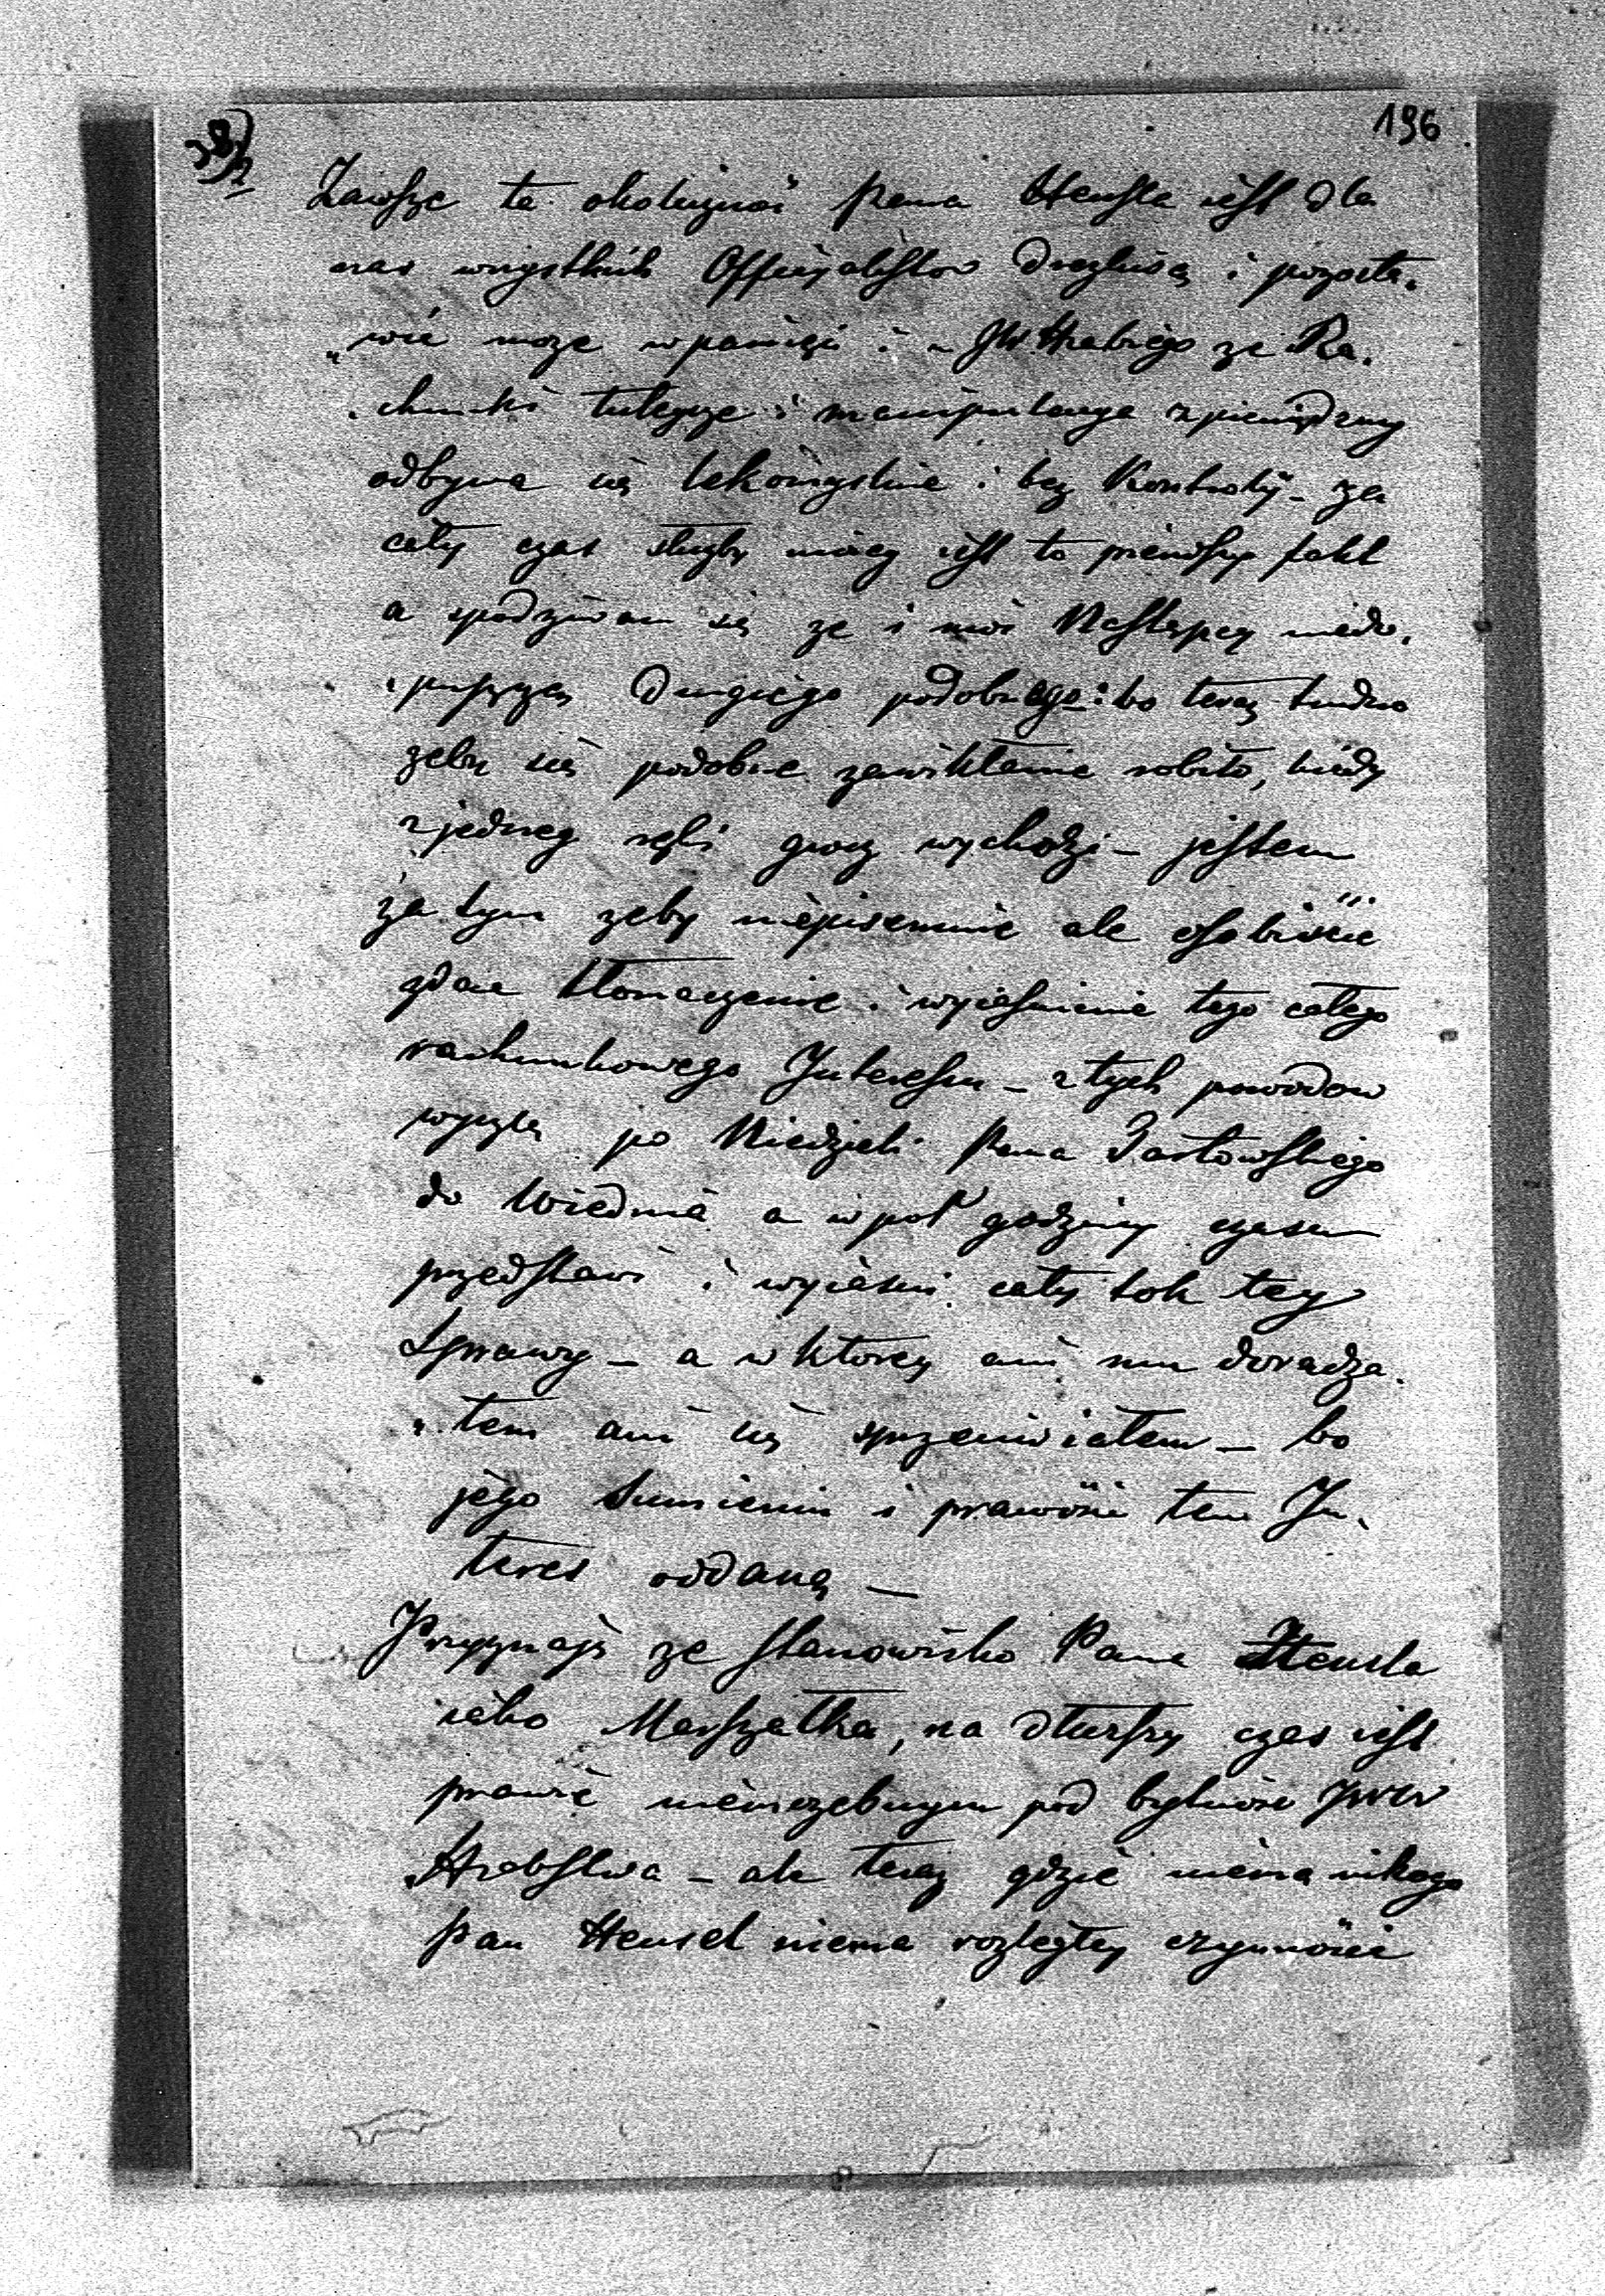 196
Zawsze ta okoliczność Pana Hensla iest dla
nas wszystkich Officyalistow drażliwą i pozosta„
„wić może w pamięci i u JW Hrabiego że Ra„
„chunki tutejsze i manipulacya z pieniędzmy
odbywa się lekomyslnie i bez Kontroly – za
cały czas służby moiey iest to pierwszy fakt
a spodziwam się że i moi Następcy niedo„
„puszczą drugiego podobnego: bo teraz trudno
żeby się podobne zawikłanie robiło, kiedy
z jedney ręki grosz wychodzi – jestem
za tym żeby niepisemnie ale osobiscie
zdać tłomaczenie i wyiasnienie tego całego
rachunkowego Interessu – z tych powodow
wyszlę po Niedzieli Pana
do Wiednia a w poł godziny czasu
przedstawi i wyiasni cały tok tey
Sprawy – a w ktorey ani mu doradza„
„łem ani się sprzeciwiałem – bo
jego Sumieniu i prawości ten In„
teres oddaną –
Przyznaję że stanowisko Pana Hensla
iako Marszałka, na dłuższy czas iest
prawie niemożebnym pod bytność JWW
Hrabstwa – ale teraz gdzie niema nikogo
Pan Hensel niema rozległey czynności